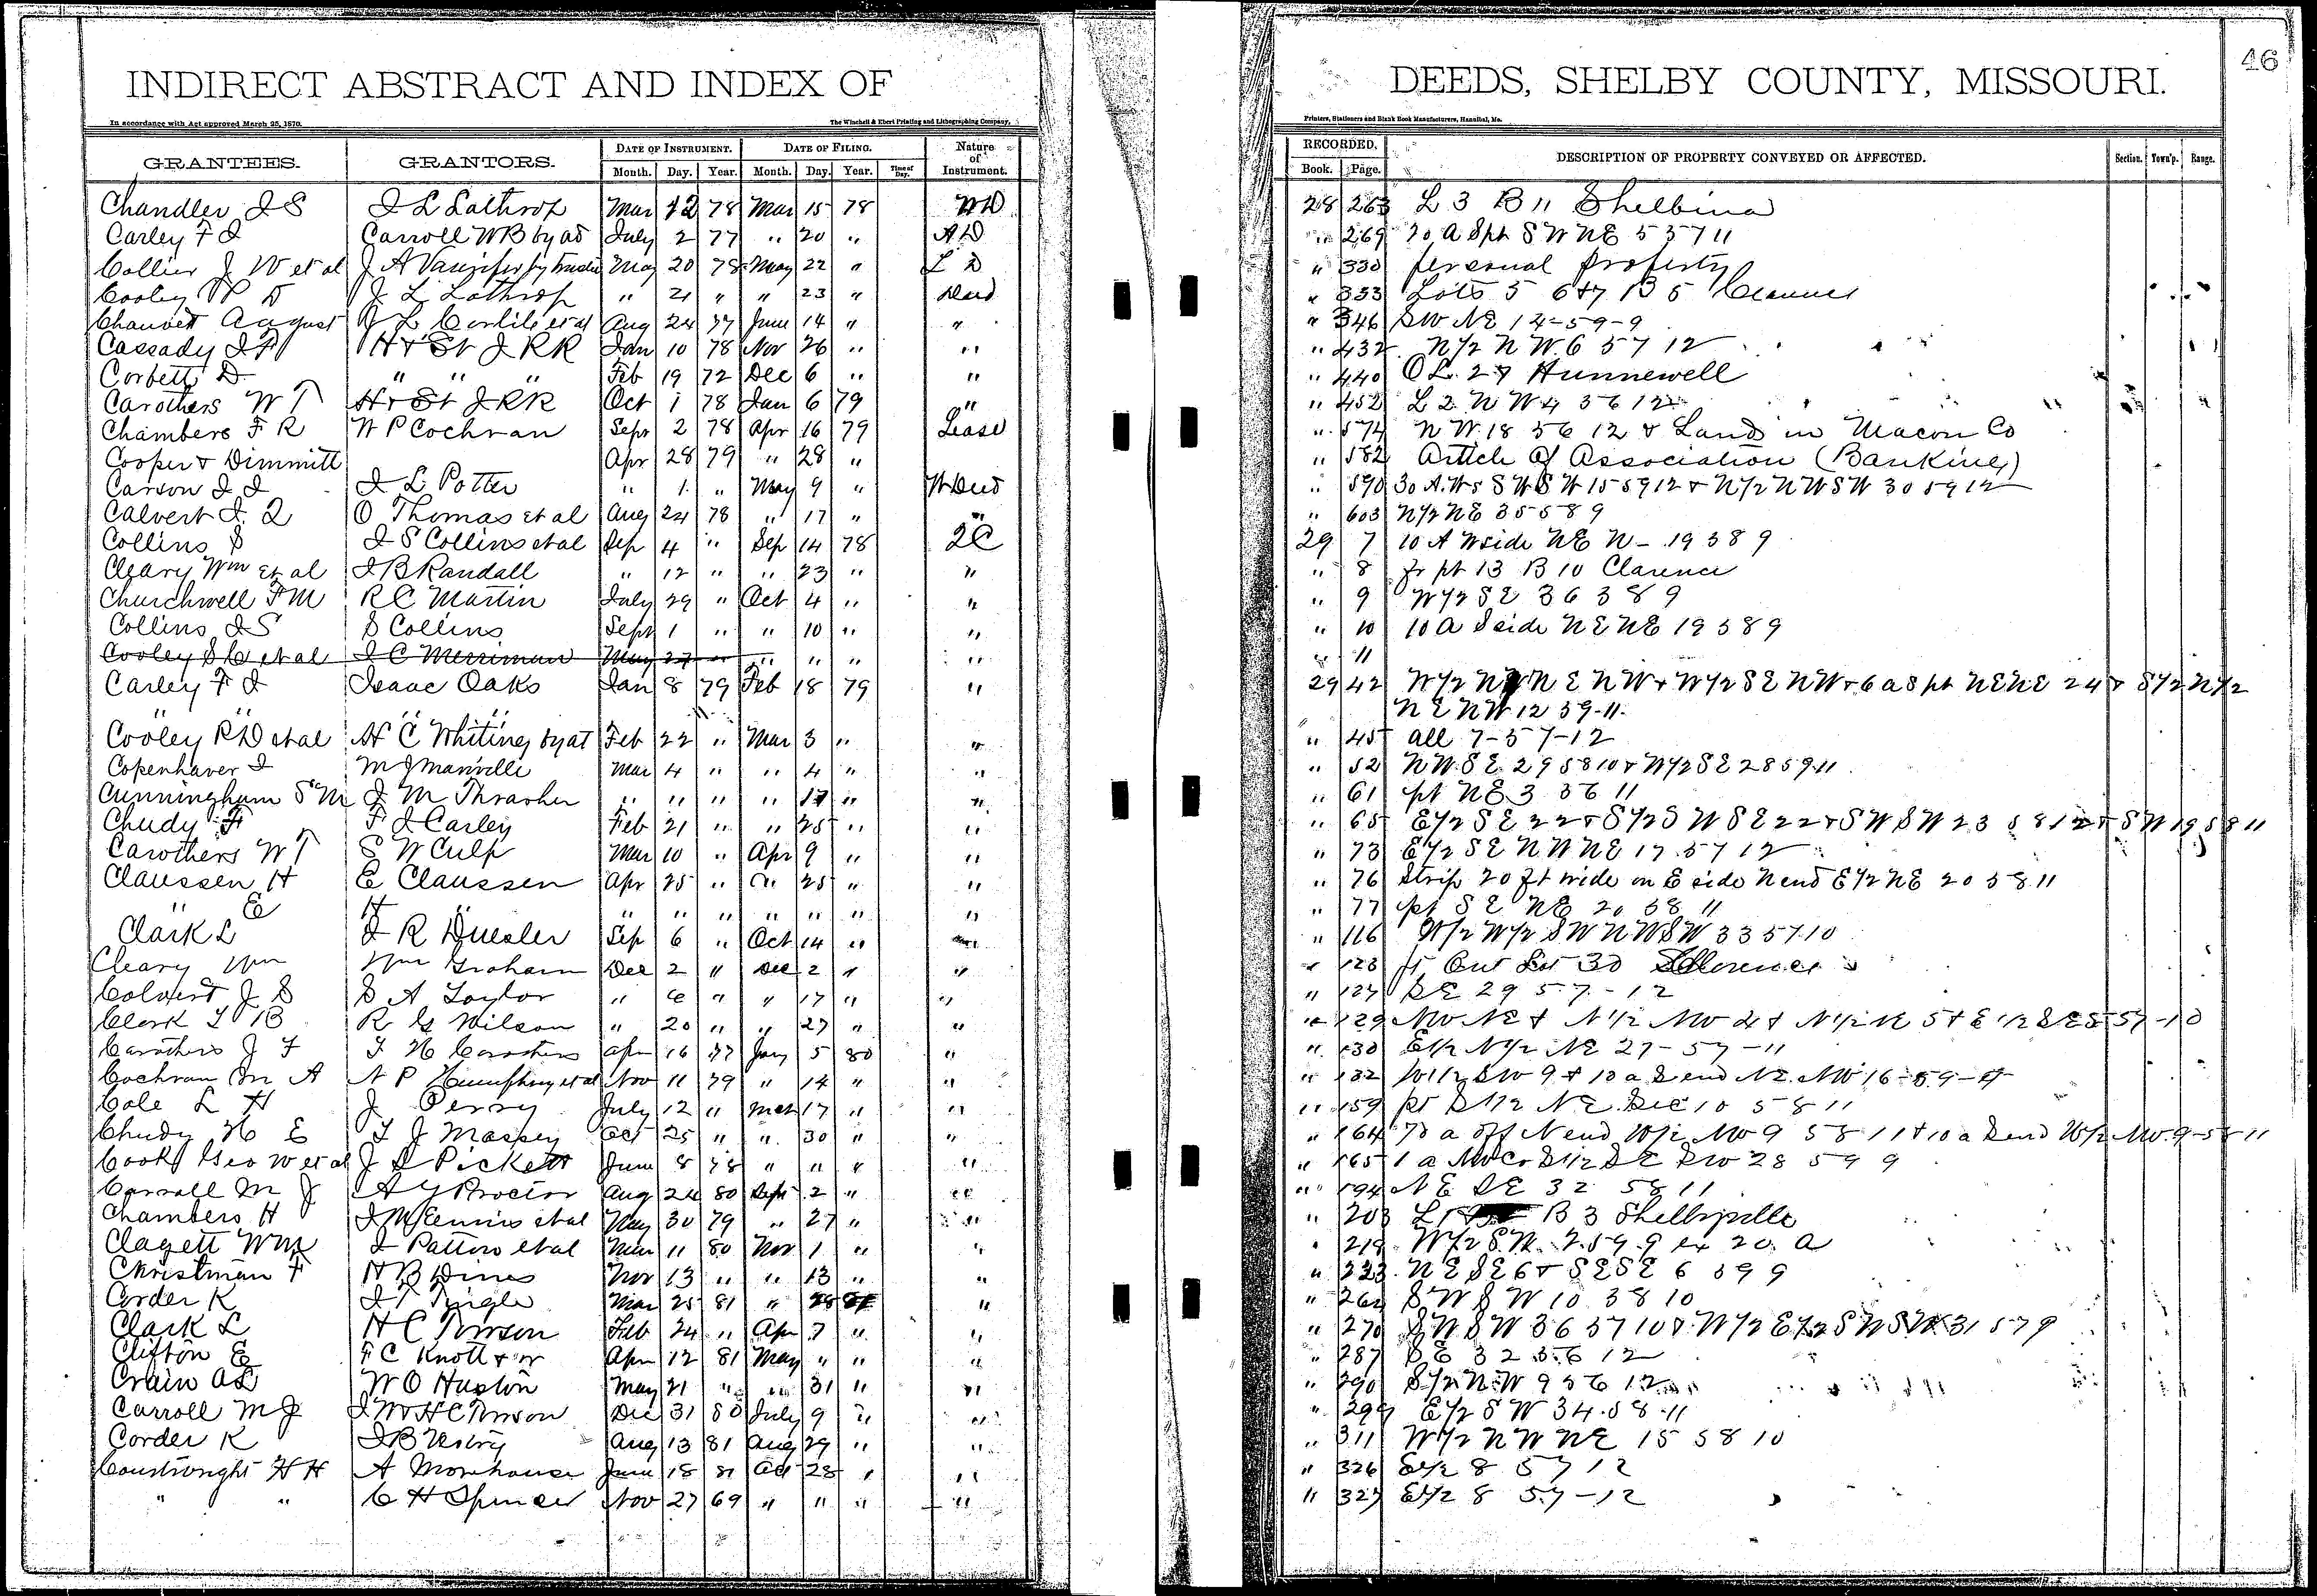 46
INDIRECT ABSTRACT AND INDEX OF DEEDS, SHELBY COUNTY, MISSOURI.
In accordance with Act approved March 25, 1870. The Winchell & Ebert Printing and Lithographing Company, Printers, Stationers and Blank Book Manufacturers, Hannibal, Mo.
GRANTEES. GRANTORS. DATE OF INSTRUMENT. DATE OF FILING. Nature of Instrument. RECORDED. DESCRIPTION OF PROPERTY CONVEYED OR AFFECTED. Section. Town'p. Range.
Month. Day. Year. Month. Day. Year. Time of Day. Book. Page.
Chandler J S J L Lathrop Mar 12 78 Mar 15 78 WD 28 263 L 3 B 11 Shelbina
Carley F J Carroll WB by ad July 2 77 " 20 " AD " 269 20 A Spt SW NE 5 57 11
Collier J W et al J A by trustee May 20 78 May 22 " " 330 personal property
Cooley J L Lathrop " 21 " " 23 " Deed " 333 Lots 5 6 & 7 B 5
Chauvet August J L Carlile et al Aug 24 77 June 14 " " " 346 SW NE 14-59-9
Cassady J F H & St J RR Jan 10 78 Nov 26 " " " 432 N 1/2 N W 6 57 12
Corbett D " " " Feb 19 72 Dec 6 " " " 440 OL 27 Hunnewell
Carothers W T H & St J RR Oct 1 78 Jan 6 79 " " 452 L 2 N W 4 56 12
Chambers F R W P Cochran Sept 2 78 Apr 16 79 Lease " 574 N W 18 56 12 & Land in Macon Co
Cooper & Dimmitt Apr 28 79 " 28 " " 582 Article of Association (Banking)
Carson J J J L Potter " 1 " May 9 " W Deed " 590 30 A. W S SW SW 15 59 12 & N 1/2 NW SW 30 59 12
Calvert J Q O Thomas et al Aug 24 78 " 17 " " " 603 N 1/2 NE 35 58 9
Collins S J S Collins et al Sep 4 " Sep 14 78 QC 29 7 10 A W side NE N- 19 58 9
Cleary Wm et al J B Randall " 12 " " 23 " " " 8 fr pt 13 B 10 Clarence
Churchwell F M R C Martin July 29 " Oct 4 " " " 9 W 1/2 SE 36 58 9
Collins J S S Collins Sept 1 " " 10 " " " 10 10 A S side NE NE 19 58 9
Cooley S C et al J C Merriman May 27 " " " " " " 11
Carley F J Isaac Oaks Jan 8 79 Feb 18 79 " 29 42 W 1/2 N E NW & W 1/2 SE NW & 6 a S pt NE NE 24 & S 1/2 N 1/2
" " " " " NE NW 12 59-11
Cooley R D et al H C Whiting by at Feb 22 " Mar 3 " " " 45 all 7-57-12
Copenhaver J M J Manville Mar 4 " " 4 " " " 52 NW SE 29 58 10 & W 1/2 SE 28 59 11
Cunningham S M J M Thrasher " " " " 17 " " " 61 pt NE 3 56 11
Chudy F F J Carley Feb 21 " " 25 " " " 65 E 1/2 SE 22 & S 1/2 SW SE 22 & SW SW 23 58 12 & SW 19 58 11
Carothers W T S W Culp Mar 10 " Apr 9 " " " 73 E 1/2 SE NW NE 17 57 12
Claussen H E Claussen Apr 25 " " 25 " " " 76 Strip 20 ft wide on E side N end E 1/2 NE 20 58 11
" E H " " " " " " " " " 77 pt SE NE 20 58 11
Clark L J R Duesler Sep 6 " Oct 14 " " " 116 W 1/2 W 1/2 SW NW SW 33 57 10
Cleary Wm Wm Graham Dec 2 " Dec 2 " " " 123 Out Lot 30
Calvert J S S A Taylor " 6 " " 17 " " " 127 SE 29 57-12
Clark L B R G Wilson " 20 " " 27 " " " 129 NW NE & N 1/2 NW 4 & N 1/2 NE 5 & E 1/2 SE 5 57-10
Carothers J F T H Carothers Apr 16 77 Jan 5 80 " " 130 E 1/2 N 1/2 NE 27-57-11
Cochran M A N P Humphrey et al Nov 11 79 " 14 " " " 132 W 1/2 SW 9 & 10 a S end NE NW 16-59-9
Cole L H J Perry July 12 " Mch 17 " " " 159 pt S 1/2 NE Sec 10 58 11
Chudy H E T J Massey Oct 25 " " 30 " " " 164 70 a off N end W 1/2 NW 9 58 11 & 10 a S end W 1/2 NW 9-58-11
Cook Geo W et al J S Pickett June 8 78 " " " " " 165 1 a NW Co S 1/2 SE SW 28 59 9
Carroll M J A Y Proctor Aug 24 80 Sept 2 " " " 194 NE SE 32 58 11
Chambers H J McEnnis et al May 30 79 " 27 " " " 203 L 1 B 3 Shelbyville
Clagett Wm J Patton et al Mar 11 80 Nov 1 " " " 219 W 1/2 SW 2 59 9 ex 20 a
Christman F H B Dines Nov 13 " " 13 " " " 223 NE SE 6 & SE SE 6 59 9
Corder K J T Tingle Mar 25 81 " 28 " " 264 SW SW 10 58 10
Clark L H C Towson Feb 24 " Apr 7 " " " 270 SW SW 36 57 10 & W 1/2 E 1/2 SW SW 31 57 9
Clifton E F C Knott & w Apr 12 81 May " " " " 287 SE 32 56 12
Crain A L W O Huston May 21 " " 31 " " " 290 S 1/2 NW 9 56 12
Carroll M J J W & H C Towson Dec 31 80 July 9 " " " 299 E 1/2 SW 34 58 11
Corder K J B Aug 13 81 Aug 29 " " " 311 W 1/2 NW NE 15 58 10
Courtwright H H A Morehouse June 18 81 Oct 28 " " " 326 E 1/2 8 57 12
" " C H Spencer Nov 27 69 " " " " " 327 E 1/2 8 57-12